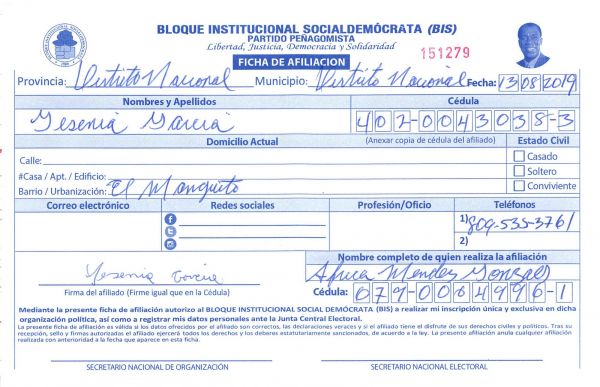 BLOQUE INSTITUCIONAL SOCIALDEMÓCRATA (BIS)
PARTIDO PEÑAGOMISTA
Libertad, Justicia, Democracia y Solidaridad
151279
FICHA DE AFILIACION
Provincia: Distrito Nacional Municipio: Distrito Nacional Fecha: 13/08/2019
Nombres y Apellidos Cédula
Yesenia Garcia 402-0043038-3
Domicilio Actual (Anexar copia de cédula del afiliado) Estado Civil
Calle: Casado
#Casa / Apt. / Edificio: Soltero
Barrio / Urbanización: El Manguito Conviviente
Correo electrónico Redes sociales Profesión/Oficio Teléfonos
1) 809-535-3761
2)
Nombre completo de quien realiza la afiliación
Yesenia Garcia Africa Mendez Gonzalez
Firma del afiliado (Firme igual que en la Cédula) Cédula: 079-0064996-1
Mediante la presente ficha de afiliación autorizo al BLOQUE INSTITUCIONAL SOCIAL DEMÓCRATA (BIS) a realizar mi inscripción única y exclusiva en dicha
organización política, así como a registrar mis datos personales ante la Junta Central Electoral.
La presente ficha de afiliación es válida si los datos ofrecidos por el afiliado son correctos, las declaraciones veraces y si el afiliado tiene el disfrute de sus derechos civiles y políticos. Tras su
recepción, sello y firmas autorizadas el afiliado ejercerá todos los derechos y los deberes estatutariamente sancionados, de acuerdo a la ley. La presente afiliación anula cualquier afiliación
realizada con anterioridad a la fecha que aparece en esta ficha.
SECRETARIO NACIONAL DE ORGANIZACIÓN SECRETARIO NACIONAL ELECTORAL